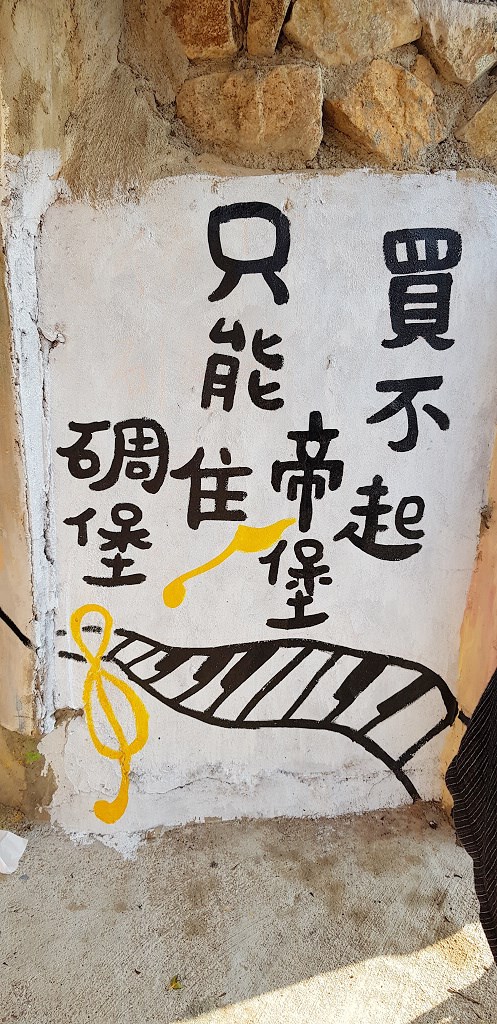 買不起
帝堡
只能住
碉堡